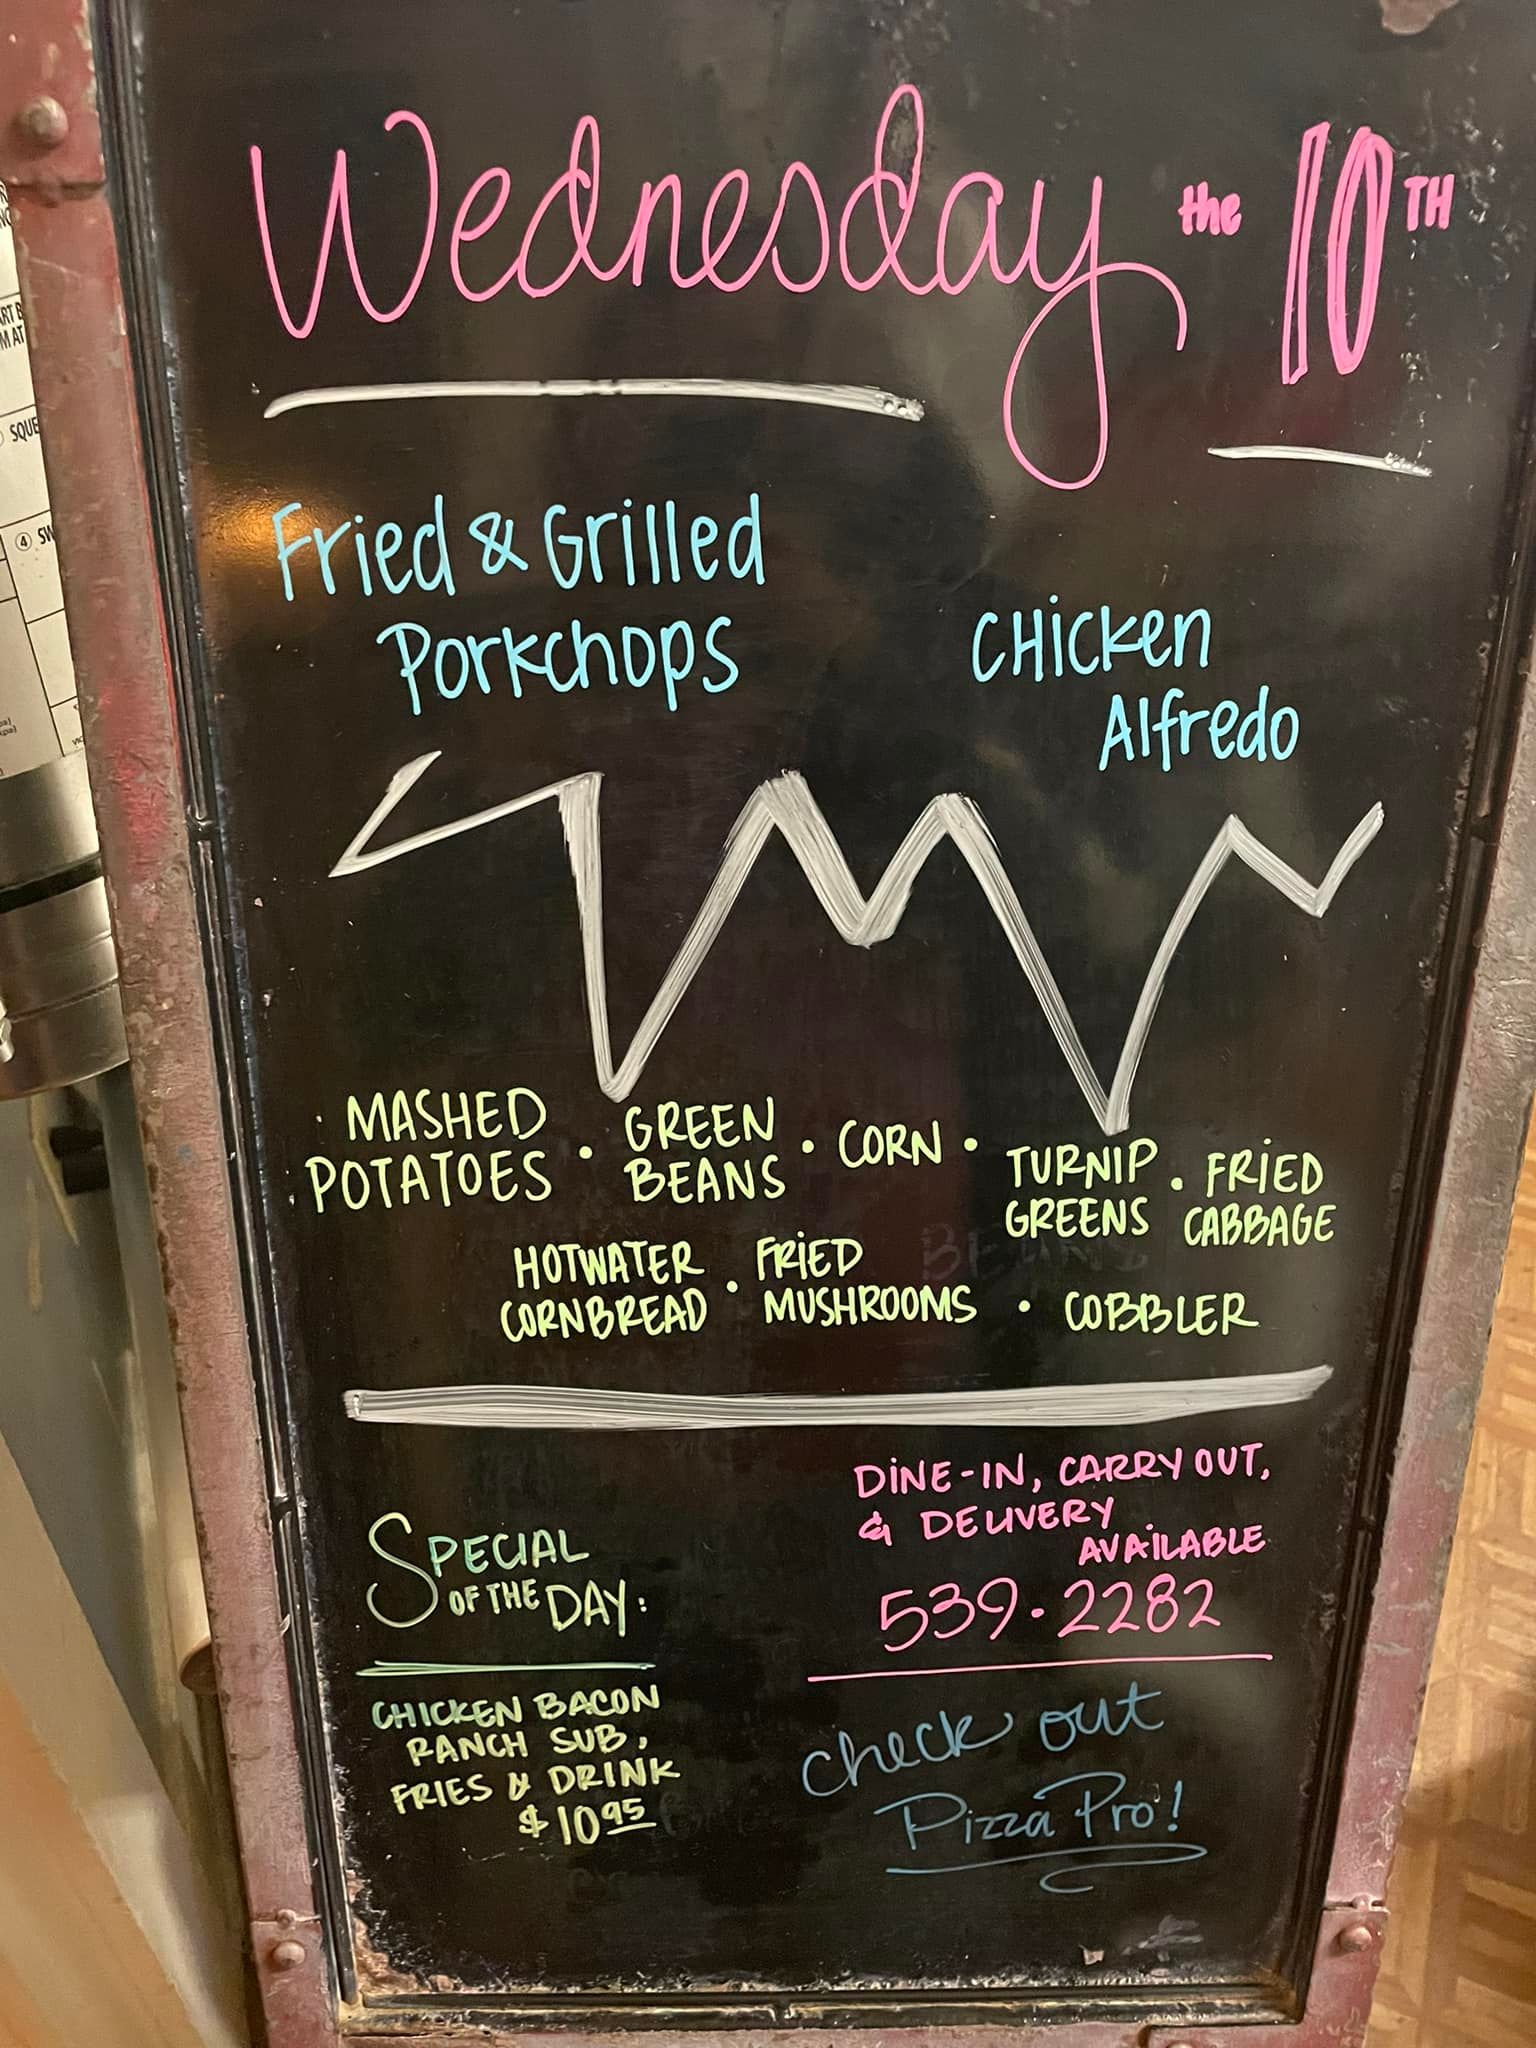 Wednesday the 10TH
Fried & Grilled
Porkchops
CHicken
Alfredo
MASHED
POTATOES
• GREEN
BEANS
• CORN •
TURNIP
GREENS
• FRIED
CABBAGE
HOTWATER
CORNBREAD
• FRIED
MUSHROOMS
• COBBLER
SPECIAL
OF THE DAY:
CHICKEN BACON
RANCH SUB,
FRIES & DRINK
$10.95
DINE-IN, CARRY OUT,
& DELIVERY
AVAILABLE
539-2282
Check out
Pizza Pro!
SQUE
④ SW